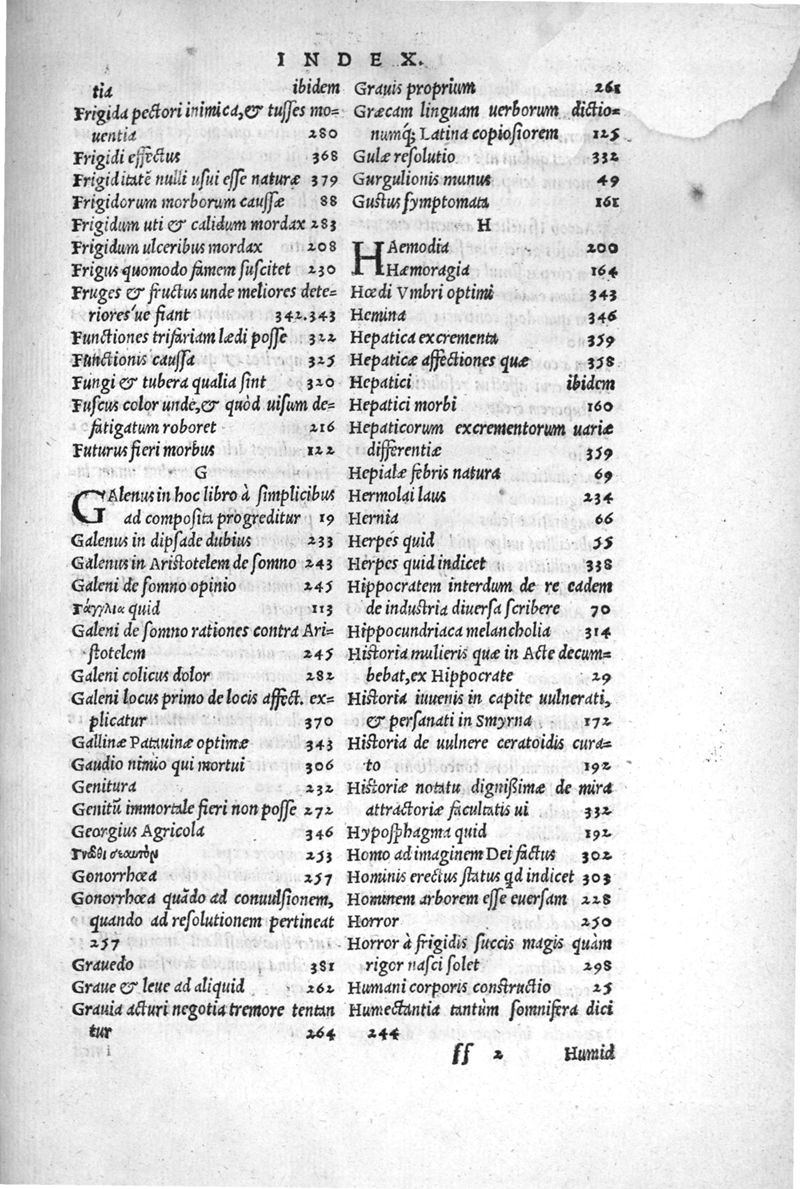 INDEX.
tia ibidem
Frigida pectori inimica, & tusses mo=
uentia 280
Frigidi effectus 368
Frigiditatē nulli usui esse naturæ 379
Frigidorum morborum caussæ 88
Frigidum uti & calidum mordax 283
Frigidum ulceribus mordax 208
Frigus quomodo famem suscitet 230
Fruges & fructus unde meliores dete=
riores'ue fiant 342.343
Functiones trifariam lædi posse 322
Functionis caussa 325
Fungi & tubera qualia sint 320
Fuscus color unde, & quòd uisum de=
fatigatum roboret 216
Futurus fieri morbus 122
G
GAlenus in hoc libro à simplicibus
ad composita progreditur 19
Galenus in dipsade dubius 233
Galenus in Aristotelem de somno 243
Galeni de somno opinio 245
Γάγγλια quid 113
Galeni de somno rationes contra Ari=
stotelem 245
Galeni colicus dolor 282
Galeni locus primo de locis affect. ex=
plicatur 370
Gallinæ Patauinæ optimæ 343
Gaudio nimio qui mortui 306
Genitura 232
Genitū immortale fieri non posse 272
Georgius Agricola 346
Γνῶθι σεαυτὸν 253
Gonorrhœa 257
Gonorrhœa quādo ad conuulsionem,
quando ad resolutionem pertineat
257
Grauedo 381
Graue & leue ad aliquid 262
Grauia acturi negotia tremore tentan
tur 264
Grauis proprium 261
Græcam linguam uerborum dictio=
numq; Latina copiosiorem 125
Gulæ resolutio 332
Gurgulionis munus 49
Gustus symptomata 161
H
HAemodia 200
Hæmoragia 164
Hœdi Vmbri optimi 343
Hemina 346
Hepatica excrementa 359
Hepaticæ affectiones quæ 358
Hepatici ibidem
Hepatici morbi 160
Hepaticorum excrementorum uariæ
differentiæ 359
Hepialæ febris natura 69
Hermolai laus 234
Hernia 66
Herpes quid 55
Herpes quid indicet 338
Hippocratem interdum de re eadem
de industria diuersa scribere 70
Hippocundriaca melancholia 314
Historia mulieris quæ in Acte decum=
bebat, ex Hippocrate 29
Historia iuuenis in capite uulnerati,
& persanati in Smyrna 172
Historia de uulnere ceratoidis cura=
to 192
Historiæ notatu dignißimæ de mira
attractoriæ facultatis ui 332
Hyposphagma quid 192
Homo ad imaginem Dei factus 302
Hominis erectus status qd indicet 303
Hominem arborem esse euersam 228
Horror 250
Horror à frigidis succis magis quàm
rigor nasci solet 298
Humani corporis constructio 25
Humectantia tantùm somnifera dici
244
ſſ 2 Humid